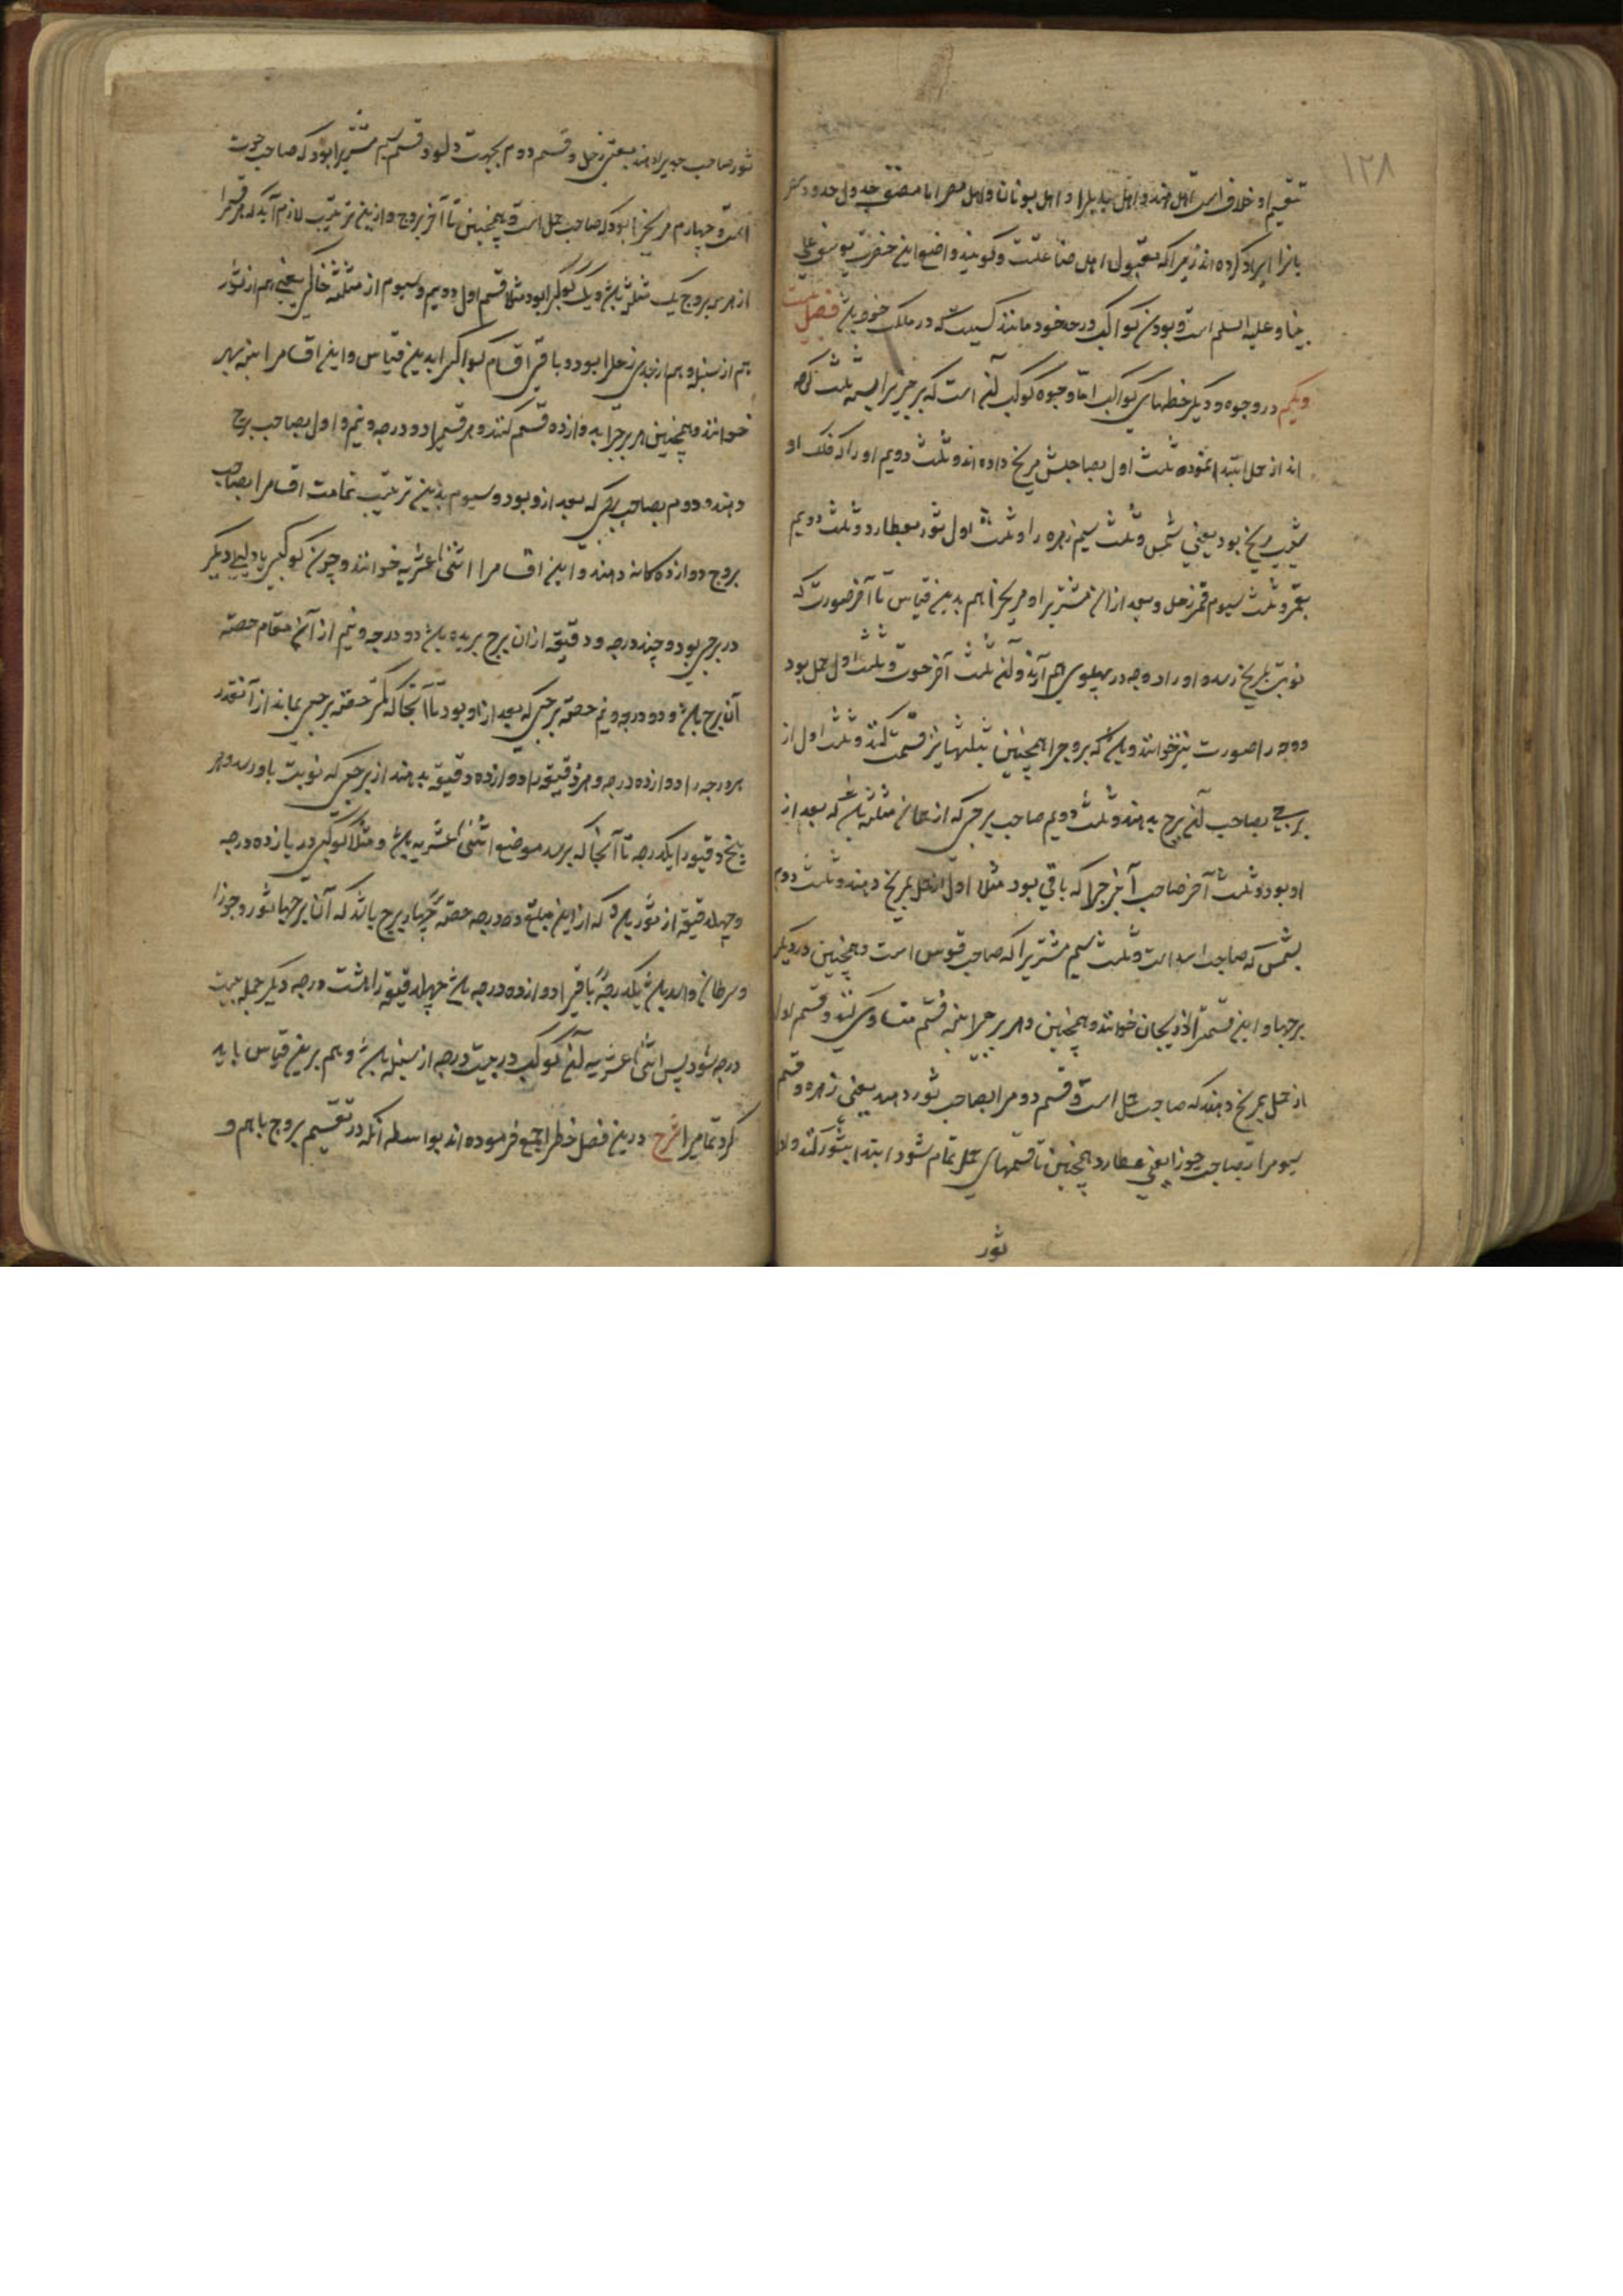 ۱۲۸
تقسیم او خلاف است اهل هند و اهل بابل را و اهل یونان و اهل مصر اما مصنف جدول حدود
یانرا ایراد کرده اند زیرا که مقبول اهل صناعتست و کویند واضع این حضرت یوسف علی
نبینا و علیه السلم است و بودن کواکب در حد خود مانند کسیست که در ملک خود باشد فصل بیست
ویکم در وجوه و دیکر حظهای کواکب اما وجوه کوکب آنست که هر برجی را بسه ثلث کرده
اند از حمل ابتدا نموده ثلث اول بصاحبش مریخ داده اند و ثلث دویم او را که فلک او
شیب مریخ بود یعنی شمس و ثلث سیم زهره را و ثلث اول ثور بعطارد و ثلث دویم
بقمر و ثلث سیوم زحل و بعد از ان مشتری را و مریخ را هم بدین قیاس تا آخر صورت که
نوبت بمریخ رسد و او را دو وجه در پهلوی هم آید و آن ثلث آخر حوت و ثلث اول حمل بود
و وجه را صورت نیز خوانند و باشد که بروج را همچنین بثلثها نیز قسمت کنند و ثلث اول از
برجی بصاحب آن برج بدهند و ثلث دویم صاحب برجی که از همان مثلثه باشد که بعد از
او بود و ثلث آخر صاحب آن برج را که باقی بود مثلا اول از حمل بمریخ دهند و ثلث دوم
بشمس که صاحب اسد است و ثلث سیم مشتری را که صاحب قوس است و همچنین در دیکر
برجها و این قسمت را دریجان خوانند و همچنین هر برج را بنه قسم متساوی کنند و قسم اول
از حمل بمریخ دهند که صاحب حمل است و قسم دوم را بصاحب ثور دهند یعنی زهره و قسم
سیوم را بصاحب جوزا یعنی عطارد همچنین تا قسمهای حمل تمام شود ابتدا بثور کنند و اول
ثور
ثور صاحب جدی را دهند یعنی زحل و قسم دوم بجهت دلو و قسم سیم مشتری را بود که صاحب حوت
است و چهارم مریخ را بود که صاحب حمل است و همچنین تا آخر بروج و ازین ترتیب لازم آید که هر قسم را
از هر سه بروج یک مثلثه باشد و یک کوکب را بود مثلا قسم اول و دویم و سیوم از مثلثه خاکی یعنی هم از ثور
هم از سنبله و هم از جدی زحل را بود و باقی اقسام کواکب را بدین قیاس و این اقسام را نه بهر
خوانند و همچنین هر برج را بدوازده قسم کنند و هر قسمی را دو درجه و نیم و اول بصاحب برج
دهند و دوم بصاحب برجی که بعد از و بود و سیوم بدین ترتیب تمامت اقسام را بصاحب
بروج دوازده کانه دهند و این اقسام را اثنی عشریه خوانند و چون کوکبی یا دلیلی دیکر
در برجی بود و چند درجه و دقیقه از ان برج بریده باشد دو درجه و نیم از آن مقام حصه
آن برج باشد و دو درجه و نیم حصه برجی که بعد از او بود تا آنجا که کمتر حصه برجی بماند از آنقدر
هر درجه را دوازده درجه و هر دقیقه را دوازده دقیقه بدهند از برجی که نوبت باو رسد و هر
پنج دقیقه را یکدرجه تا آنجا که برسد موضع اثنی عشریه باشد و مثلا کوکبی در یازده درجه
و چهل دقیقه از ثور باشد که از این مبلغ ده درجه حصه چهار برج باشد که آن برجها ثور و جوزا
و سرطان و اسد باشد یکدرجه باقی را دوازده درجه باشد چهل دقیقه را هشت درجه دیکر جمله بیست
درجه شود پس اثنی عشریه آن کوکب در بیست درجه از سنبله باشد و هم برین قیاس باید
کرد تمامی را شرح درین فصل حظ را جمع فرموده اند بواسطه آنکه در تقسیم بروج باهم و